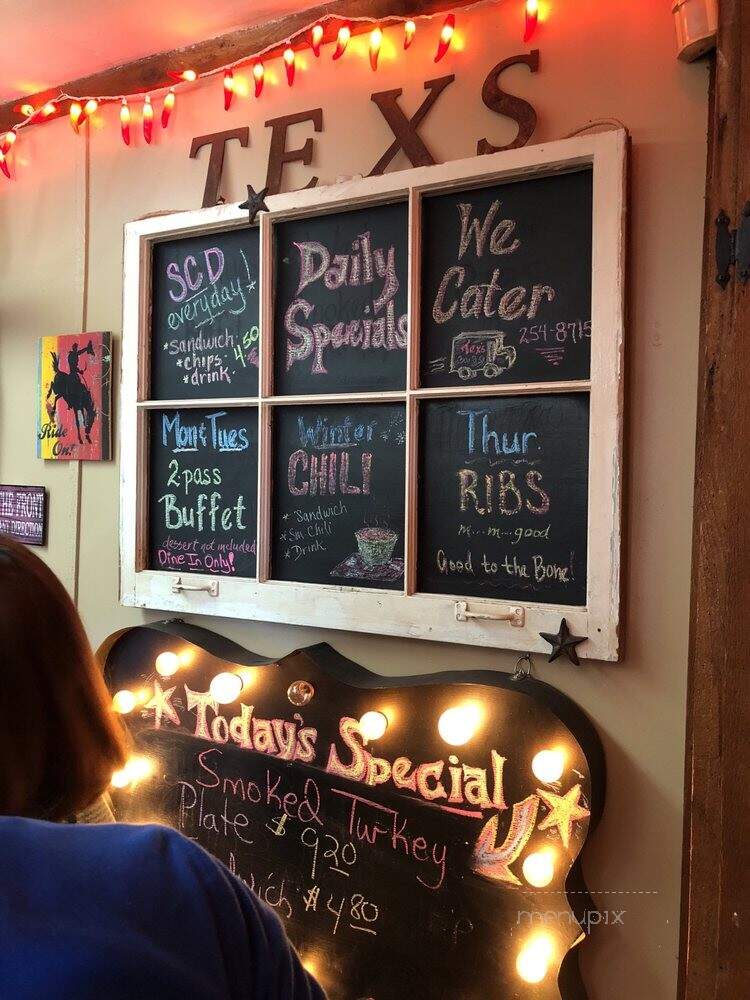 TEXS
SCD
everyday!
*Sandwich
*chips
*drink
4.50
Daily
Specials
We
Cater
Tex's
254-8715
Mon & Tues
2 pass
Buffet
dessert not included
Dine In Only!
Winter
CHILI
*Sandwich
*Sm Chili
*Drink
Thur
RIBS
m...m...good
Good to the Bone!
Ride
On!
Today's Special
Smoked Turkey
Plate $9.20
wich $4.80
menupix